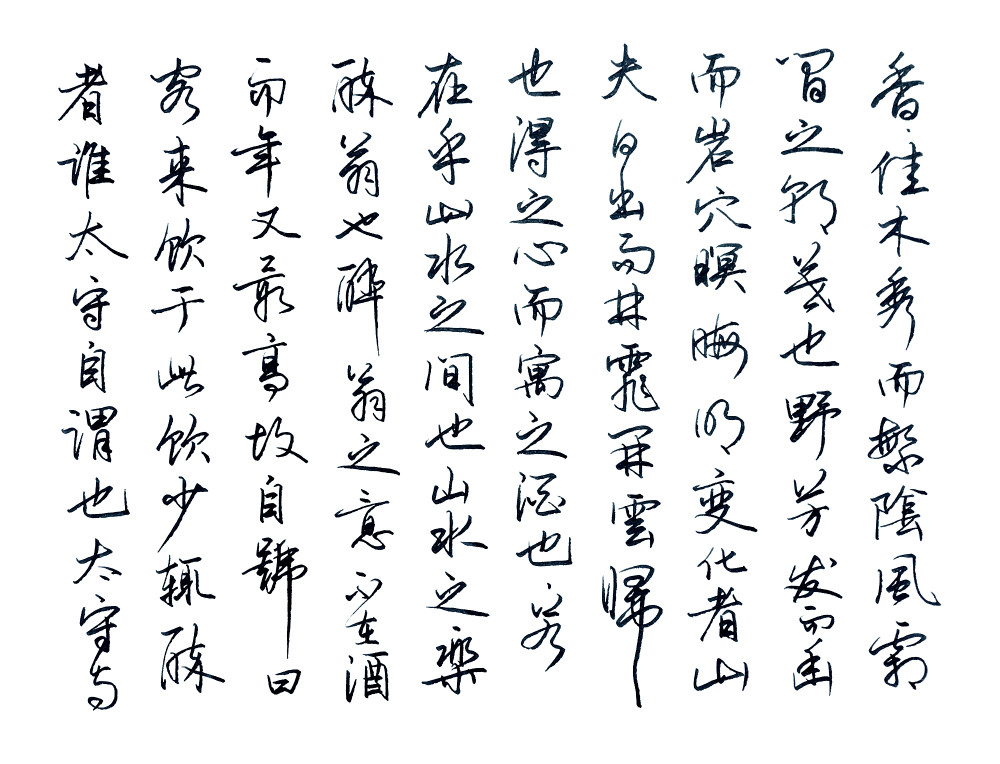 者誰太守自謂也太守与
客来飲于此飲少輒醉
而年又最高故自號曰
醉翁也醉翁之意不在酒
在乎山水之间也山水之樂
也得之心而寓之酒也若
夫日出而林霏开雲歸
而岩穴暝晦明变化者山
间之朝暮也野芳发而幽
香佳木秀而繁陰風霜